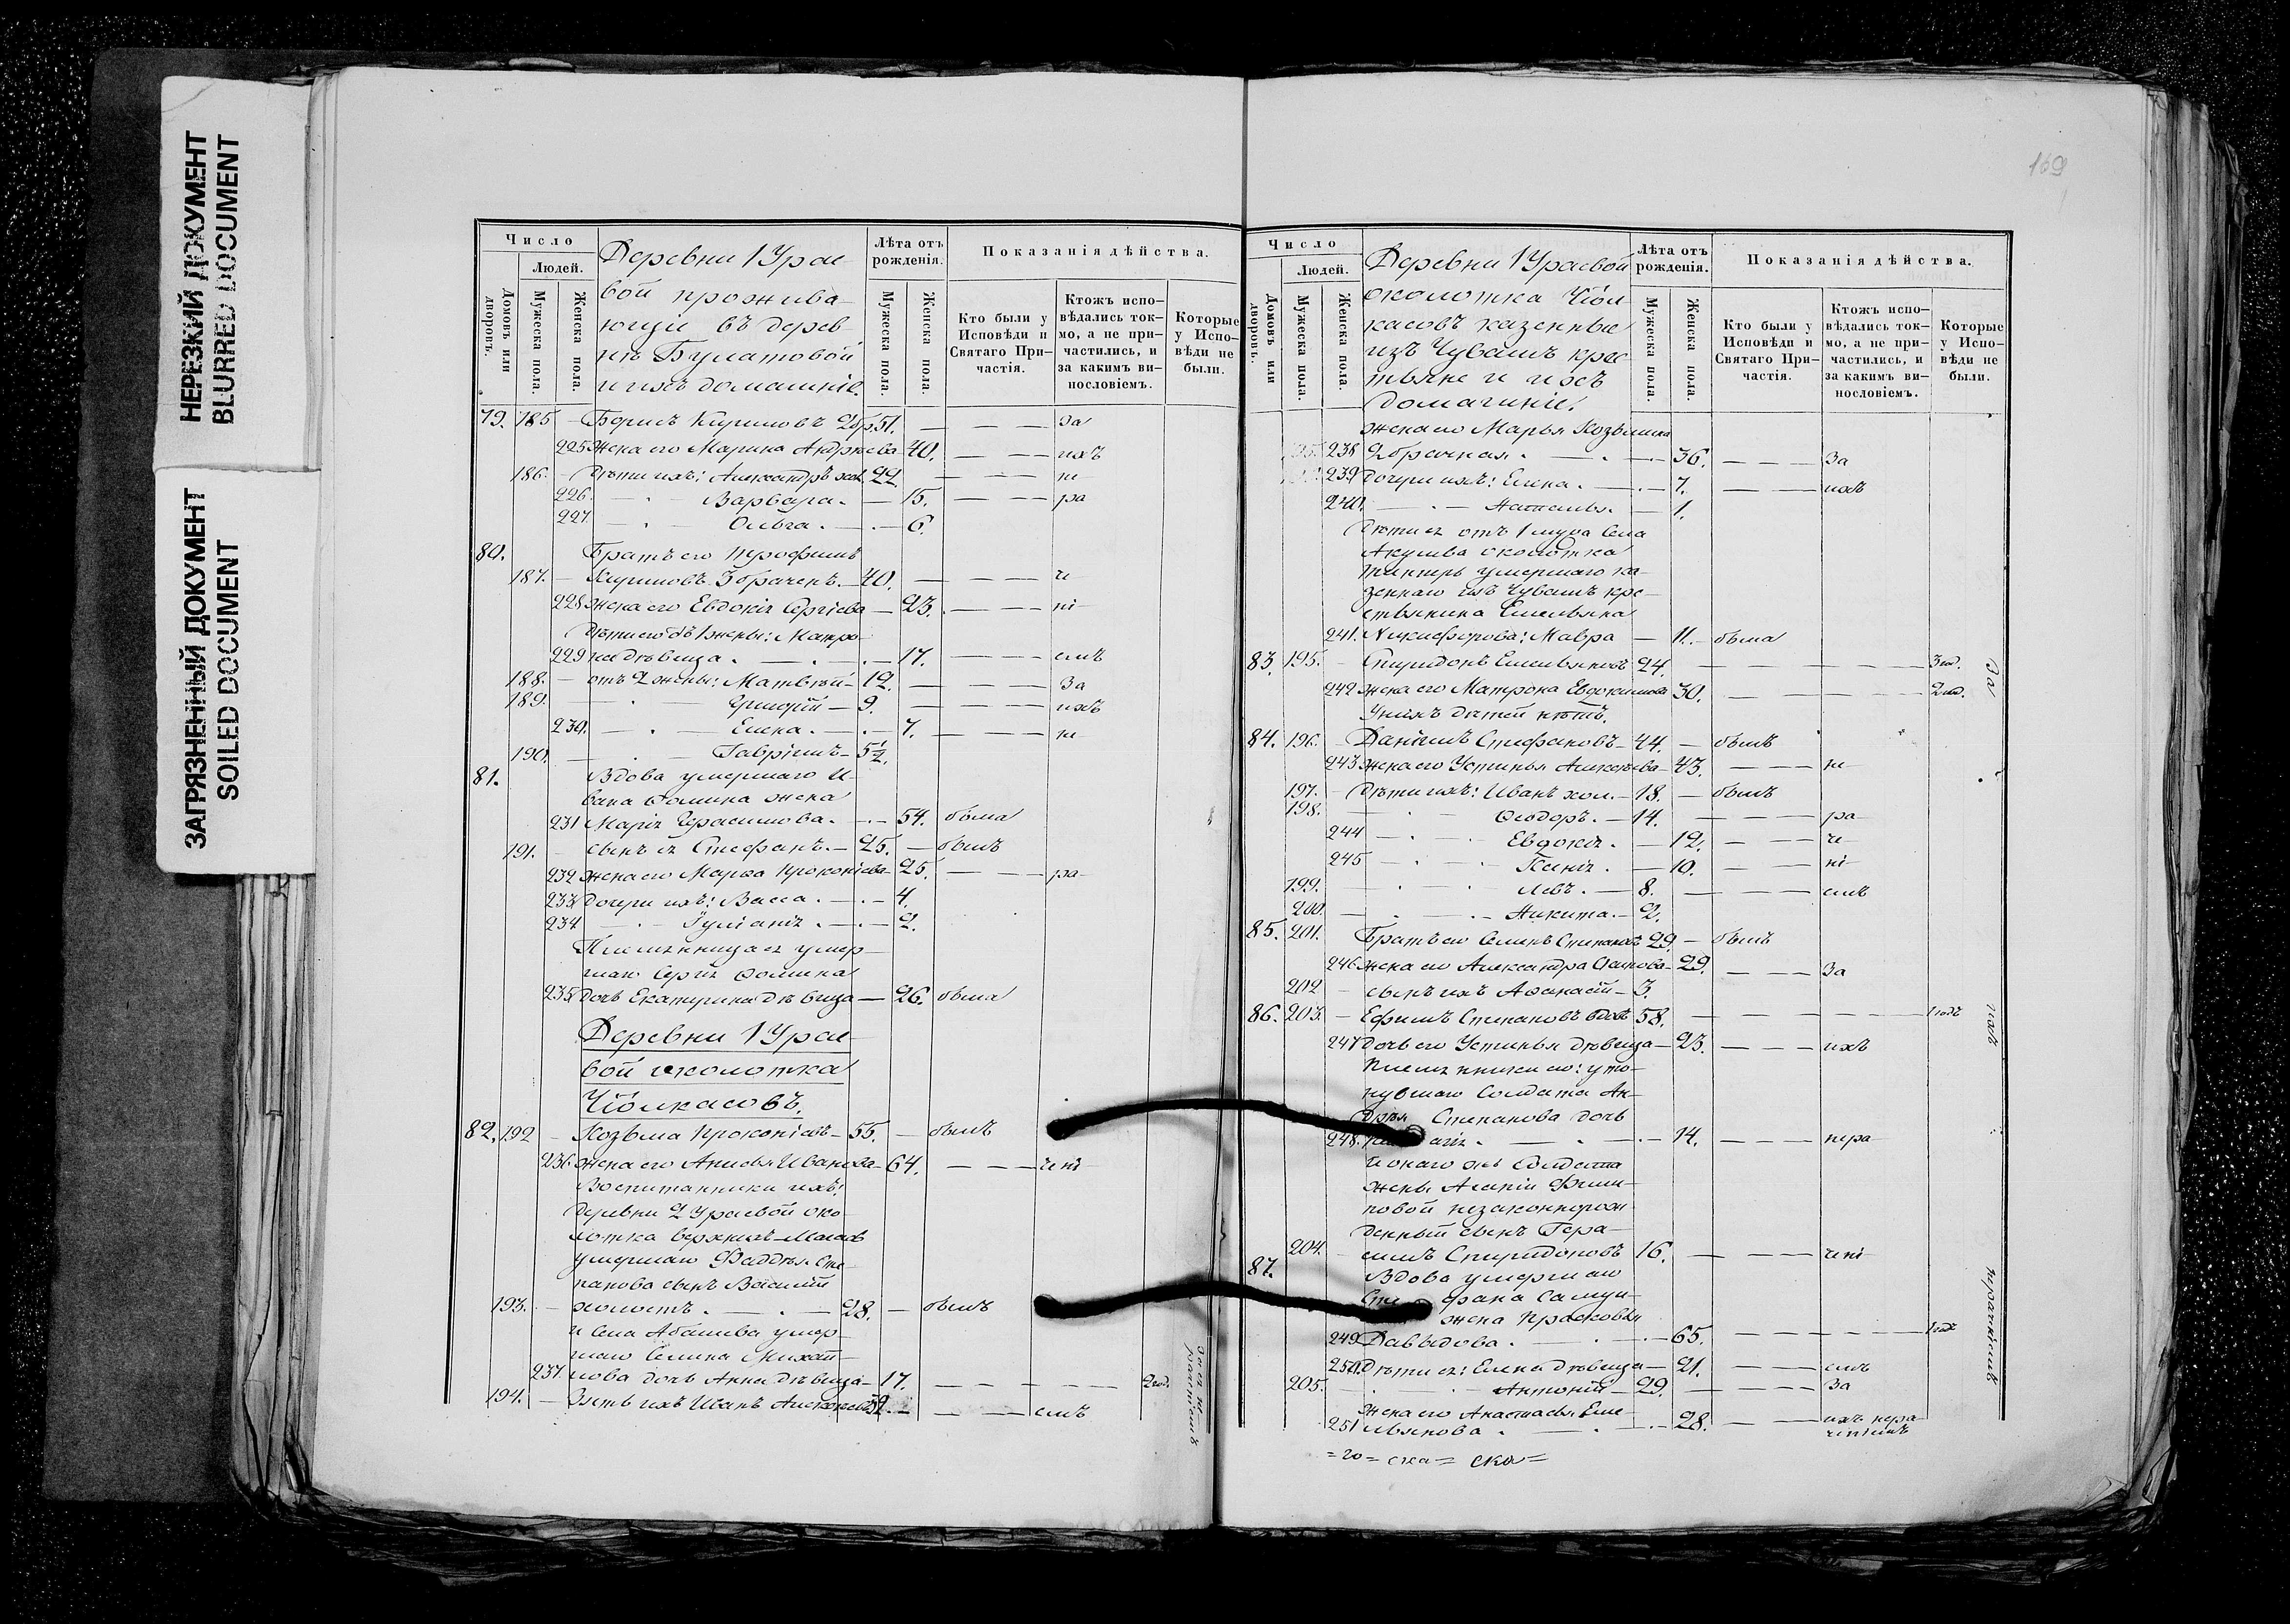 НЕРЕЗКИЙ ДОКУМЕНТ
BLURRED DOCUMENT
ЗАГРЯЗНЕННЫЙ ДОКУМЕНТ
SOILED DOCUMENT
Число
Людей.
Домовъ или дворовъ.
Мужеска пола.
Женска пола.
Деревни 1 Урае-
вой прожива-
ющіе въ дерев-
нѣ Булатовой
и ихъ домашніе.
Лѣта отъ рожденія.
Мужеска пола.
Женска пола.
Показанія дѣйства.
Кто были у Исповѣди и Святаго При-частія.
Ктожъ испо-вѣдались ток-мо, а не при-частились, и за какимъ ви-нословіемъ.
Которые у Испо-вѣди не были.
79. 185 – Борисъ Кириловъ 2 бр. 51. – – – За
225 Жена его Марина Андреева 40. – – – ихъ
186. – Дѣти ихъ: Александръ хол. 22 – – – не
226. – – Варвара. – 15. – – – ра
227. – – Ольга. – 6.
80. Братъ его
187. – Кириловъ 3 браченъ. – 40. – – – че
228 Жена его Евдокія Сергіева – 23. – – – ні
Дѣти его отъ 1 жены: Матро-
229 на дѣвица. – 17. – – – емъ
188. – отъ 2 жены: Матвѣй – 12. – – – За
189. – – Григорій – 9. – – – ихъ
230. – – Елена. – 7. – – – не
190. – – Гавріилъ – 5½.
81. Вдова умершаго И-
вана Фомина жена
231 Марія Герасимова. – 54. была
191. – сынъ ея Стефанъ. – 25. – былъ
232 жена его Марѳа Прокопіева – 25. – – ра
233 Дочери ихъ: Васса. – 4.
234 – – Іуліанія. – 2.
Племянница ея умер-
шаго Сергія Фомина
235 дочь Екатерина дѣвица – 26. была
Деревни 1 Урае-
вой околотка
Чіолкасовъ.
82. 192 – Козьма Прокопіевъ – 55. – былъ
236 жена его Анисья Иванова – 64. – – – чені
Воспитанники ихъ:
Деревни 2 Ураевой око-
лотка Верхнихъ
умершаго Фаддѣя Сте-
панова сынъ Василій
193. – холостъ. – 28. – былъ
и села Абашева умер-
шаго Семена Михай-
237. лова дочь Анна дѣвица – 17. – – – – 2 год.
194. – Зять ихъ Иванъ Алексѣевъ – – – емъ
169
Число
Людей.
Домовъ или дворовъ.
Мужеска пола.
Женска пола.
Деревни 1 Ураевой
околотка Чіол-
касовъ казенные
изъ Чувашъ крес-
тьяне и ихъ
домашніе.
Лѣта отъ рожденія.
Мужеска пола.
Женска пола.
Показанія дѣйства.
Кто были у Исповѣди и Святаго При-частія.
Ктожъ испо-вѣдались ток-мо, а не при-частились, и за какимъ ви-нословіемъ.
Которые у Испо-вѣди не были.
жена его Марья Козьмина
238 2 брачная. – 36. – – – За
239 Дочери ихъ: Елена. – 7. – – ихъ
240. – – Наталья. – 1.
Дѣти ея отъ 1 мужа села
Акулева околотка
умершаго ка-
зеннаго изъ Чувашъ кре-
стьянина Емельяна
241. Никифорова: Мавра – 11. – была
83. 195. – Спиридонъ Емельяновъ 24. – – – – 3 год.
242 жена его Матрона Евдокимова 30. – – – 2 год.
У нихъ дѣтей нѣтъ.
84. 196. – Даніилъ Стефановъ – 44. – былъ
243 жена его Устинья Алексѣева – 43. – – – не
197. – Дѣти ихъ: Иванъ хол. – 18. – былъ
198. – – Ѳеодоръ. – 14. – – – ра
244 – – Евдокія. – 12. – – че
245 – – Ксенія. – 10. – ні
199. – – Левъ. – 8. – – – емъ
200. – – Никита. – 2.
85. 201. Братъ его Семенъ Степановъ 29. – былъ
246 жена его Александра Осипова – 29. – – – За
202. – сынъ ихъ Аѳанасій – 3.
86. 203. – Ефимъ Степановъ вдовъ 58. – – – – 1 годъ
247 Дочь его Устинья дѣвица – 23. – – – ихъ
Племянники его: уто-
нувшаго солдата Ан-
дрея Степанова дочь
248. – 14. – – – нера
и онаго же солдата
жены Агапіи Филип-
повой незаконнорож-
денный сынъ Гера-
204. – симъ Спиридоновъ 16. – – – чені
87. Вдова умершаго
Сте фана Самуи-
жена Прасковья
249. Давыдова. – 65. – – – – 1 год
250. Дѣти ея: Елена дѣвица – 21. – – емъ
205. – – Антоній – 29. – – – За
Жена его Анастасья Еме-
251 льянова. – 28. – – – ихъ нера-
ченіемъ
За
ихъ
нераченіемъ
=го= ска= ска=